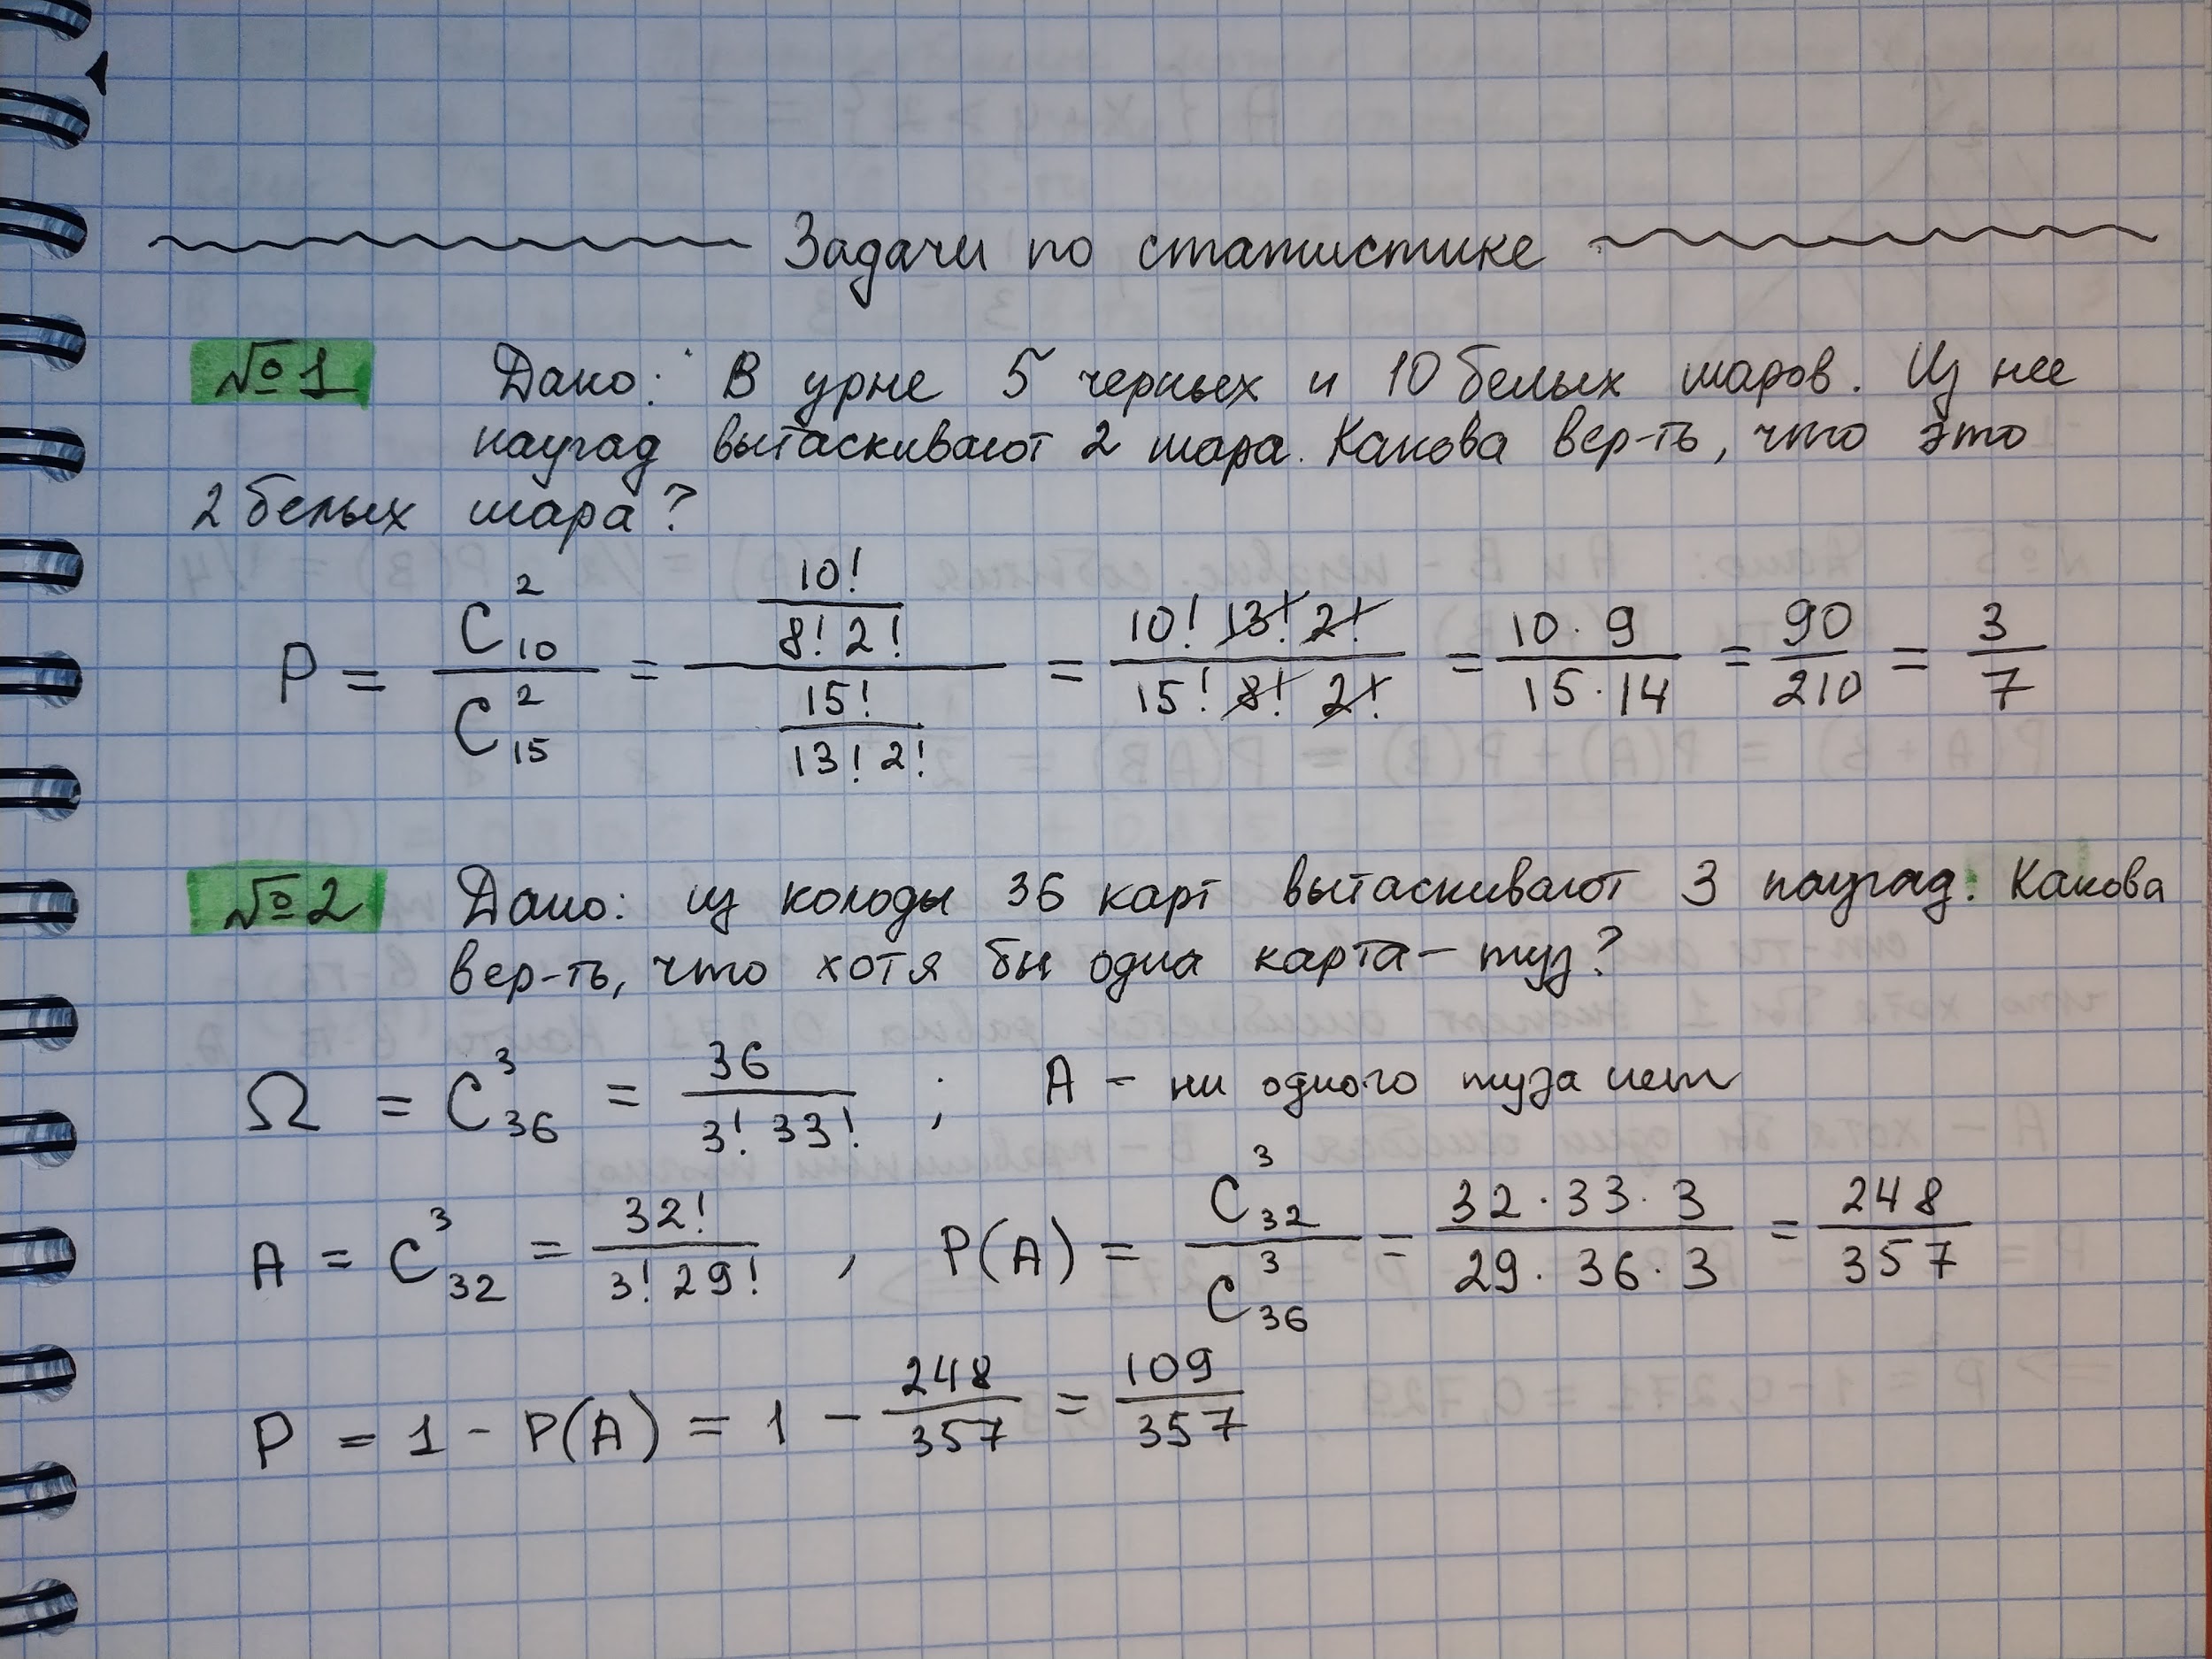 Задачи по статистике
№1 Дано: В урне 5 черных и 10 белых шаров. Из нее
наугад вытаскивают 2 шара. Какова вер-ть, что это
2 белых шара?
P = C₁₀² / C₁₅² = (10! / (8! 2!)) / (15! / (13! 2!)) = (10! 13! 2!) / (15! 8! 2!) = (10 · 9) / (15 · 14) = 90/210 = 3/7
№2 Дано: из колоды 36 карт вытаскивают 3 наугад. Какова
вер-ть, что хотя бы одна карта – туз?
Ω = C₃₆³ = 36 / (3! 33!) ; A – ни одного туза нет
A = C₃₂³ = 32! / (3! 29!) , P(A) = C₃₂³ / C₃₆³ = (32 · 33 · 3) / (29 · 36 · 3) = 248/357
P = 1 - P(A) = 1 - 248/357 = 109/357